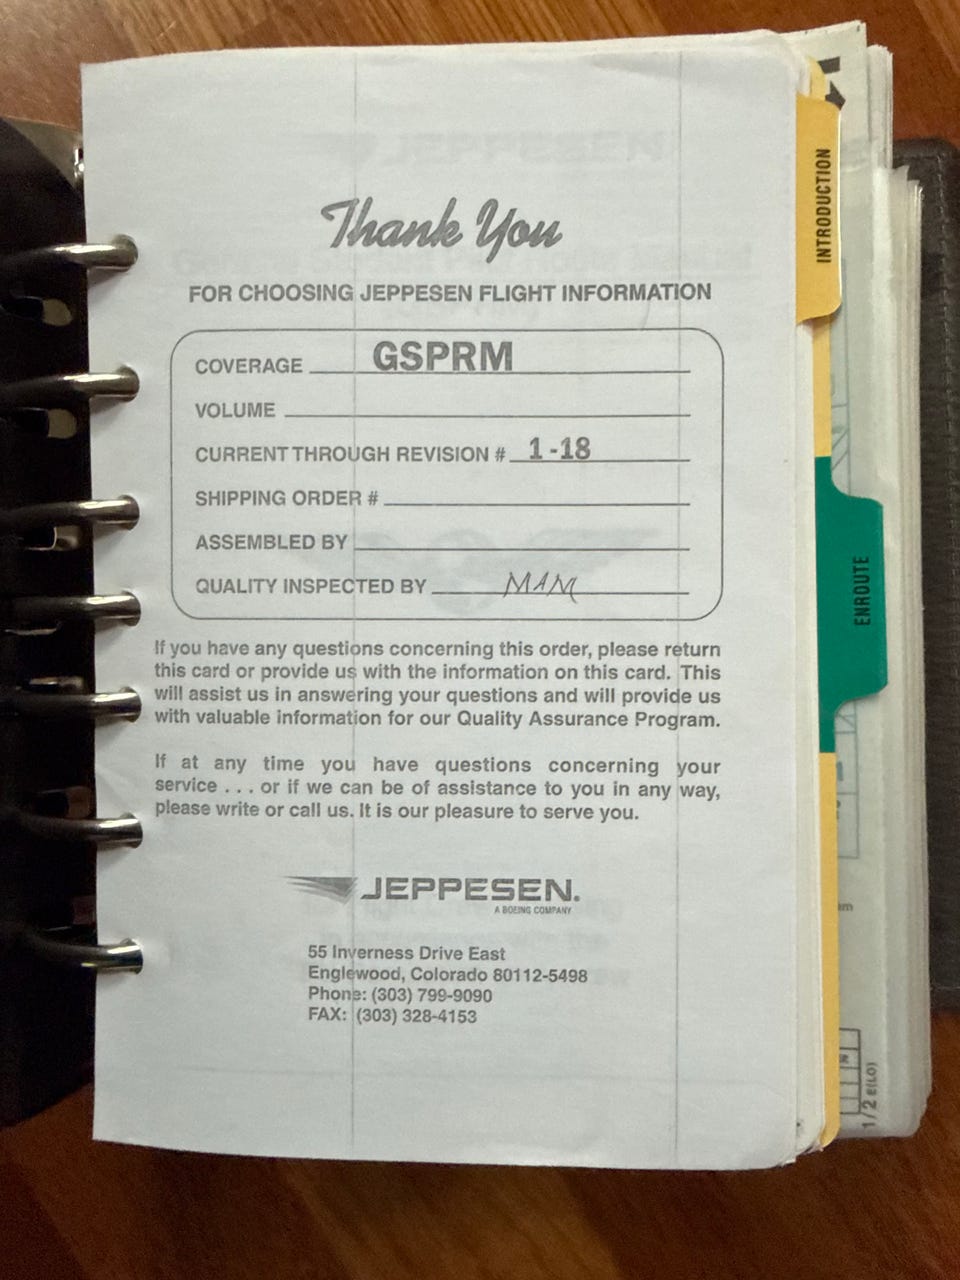 Thank You
FOR CHOOSING JEPPESEN FLIGHT INFORMATION
COVERAGE GSPRM
VOLUME
CURRENT THROUGH REVISION # 1-18
SHIPPING ORDER #
ASSEMBLED BY
QUALITY INSPECTED BY MAM
If you have any questions concerning this order, please return
this card or provide us with the information on this card. This
will assist us in answering your questions and will provide us
with valuable information for our Quality Assurance Program.
If at any time you have questions concerning your
service . . . or if we can be of assistance to you in any way,
please write or call us. It is our pleasure to serve you.
JEPPESEN.
A BOEING COMPANY
55 Inverness Drive East
Englewood, Colorado 80112-5498
Phone: (303) 799-9090
FAX: (303) 328-4153
INTRODUCTION
ENROUTE
1/2 E(LO)